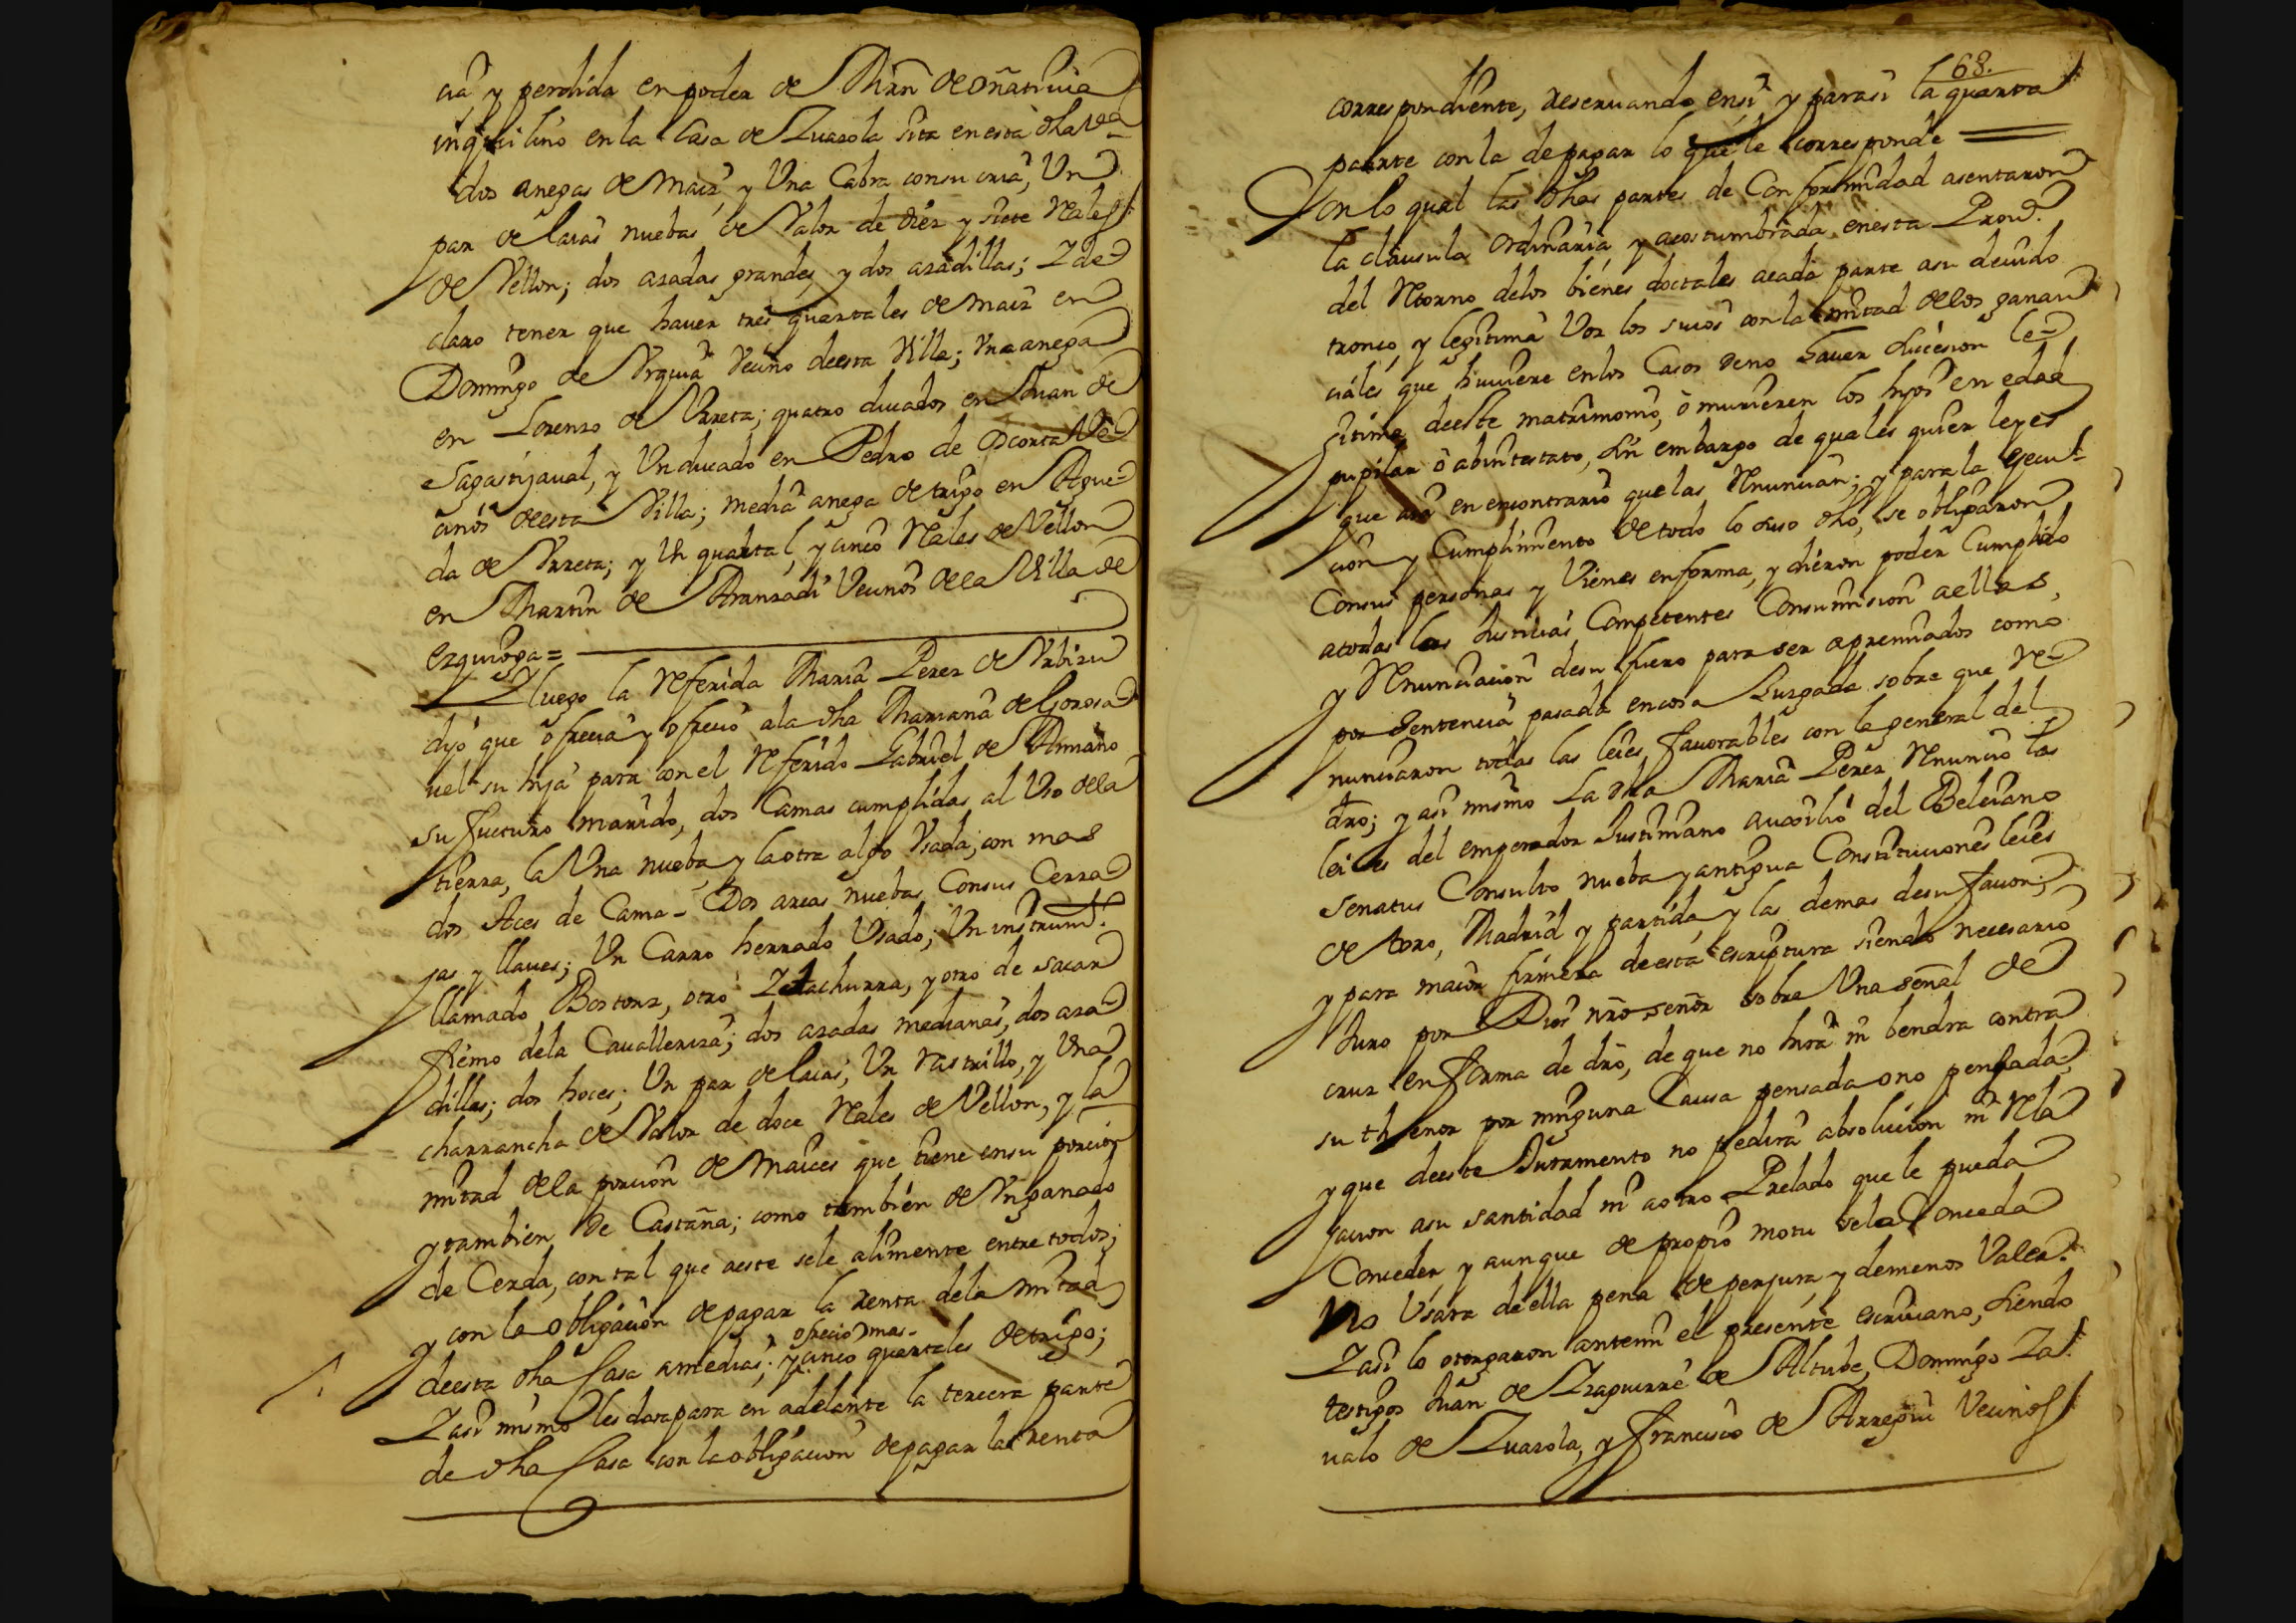 cia, y perdida en poder de Mrn de oñatiuia
inquilino en la Casa de Zuazola sita en esta dha Va
dos anegas de maiz, y Una Cabra con su cria, Un
par de laias nuebas de Valor de diez y siete Rales
de Vellon; dos azadas grandes, y dos azadillas; Z de=
claro tener que hauer tres quartales de maiz en
Domingo de Vrquia Vecino de esta Villa; Vna anega
en Lorenzo de Vrreta; quatro ducados en Juan de
Sagastijaual, y Un ducado en Pedro de Ocorta Ve=
cinos de esta Villa; media anega de trigo en Ague=
da de Vrreta; y Un quartal, y cinco Rales de Vellon
en Martin de Aranzadi Vecinos de la Villa de
Ezquioga=
Z luego la Referida Maria Perez de Vrbizu
dijo que ofrecia y ofrecio a la dha Mariana de Goroza
uel su hija para con el Referido Gabriel de Amiano
su fucturo marido, dos Camas cumplidas al Uso de la
tierra, la Vna nueba, y la otra algo Vsada; con mas
dos Aces de Cama- Dos arcas nuebas Con sus Cerra
jas y llaues; Un Carro herrado Usado; Un instrumto
llamado Bostorz, otro Zetachurra, y otro de sacar
fiemo de la Caualleriza; dos azadas medianas, dos aza
dillas; dos hoces; Un par de laias, Un rastrillo, y Una
charrancha de Valor de doce Rales de Vellon, y la
mitad de la porcion de Maices que tiene en su porcion
y tambien de Castaña; como tambien de Vn ganado
de Cerda, con tal que a este se le alimente entre todos;
y con la obligacion de pagar la renta de la mitad
ofrecio mas-
de esta dha Casa a medias; y cinco quartales de trigo;
Z asi mismo les dara para en adelante la tercera parte
de dha Casa con la obligacion de pagar la renta
68.
correspondiente, reseruando en si y para si la quarta
paarte con la de pagar lo que le corresponde
Con lo qual las dhas partes de Conformidad asentaron
la clausula Ordinaria, y acostumbrada en esta Prova
del Retorno de los bienes doctales a cada parte a su deuido
tronco, y legitima Voz los suios con la mitad de los ganan
ciales que huuiere en los Casos de no hauer sucesion le=
gitima de este matrimonio, o murieren los hijos en edad
pupilar o abintestato, sin embargo de quales quier leyes
que aia en encontrario que las Renuncian; y para la execu=
cion y Cumplimiento de todo lo suso dho, se obligaron
Con sus personas y Vienes en forma, y dieron poder Cumplido
a todas las Justicias Competentes Con sumision a ellas,
y Renunciacion de su fuero para ser apremiados como
por Sentencia pasada en cosa Juzgada sobre que Re=
nunciaron todas las leies fauorables con la general del
dro; y asi mismo La dha Maria Perez Renuncio las
leies del emperador Justiniano auxilio del Beleiano
senatus Consulto nueba y antigua Constituciones leies
de toro, Madrid y partida, y las demas de su fauor;
y para maior firmeza de esta escriptura siendo necesario
Juro por Dios nro señor sobre Vna señal de
cruz en forma de dro, de que no hira ni bendra contra
su thenor por ninguna Causa pensada o no pensada,
y que de este Juramento no pedira absolucion ni Rela
jacion a su santidad ni a otro Prelado que le pueda
Conceder y aunque de propio motu se la Conceda
No Usara de ella pena de perjura, y de menos Valer.
Z asi lo otorgaron ante mi el presente escriuano, siendo
testigos Juan de Izaguirre de Altube, Domingo Za
ualo de Zuazola, y Francisco de Arregui Vecinos